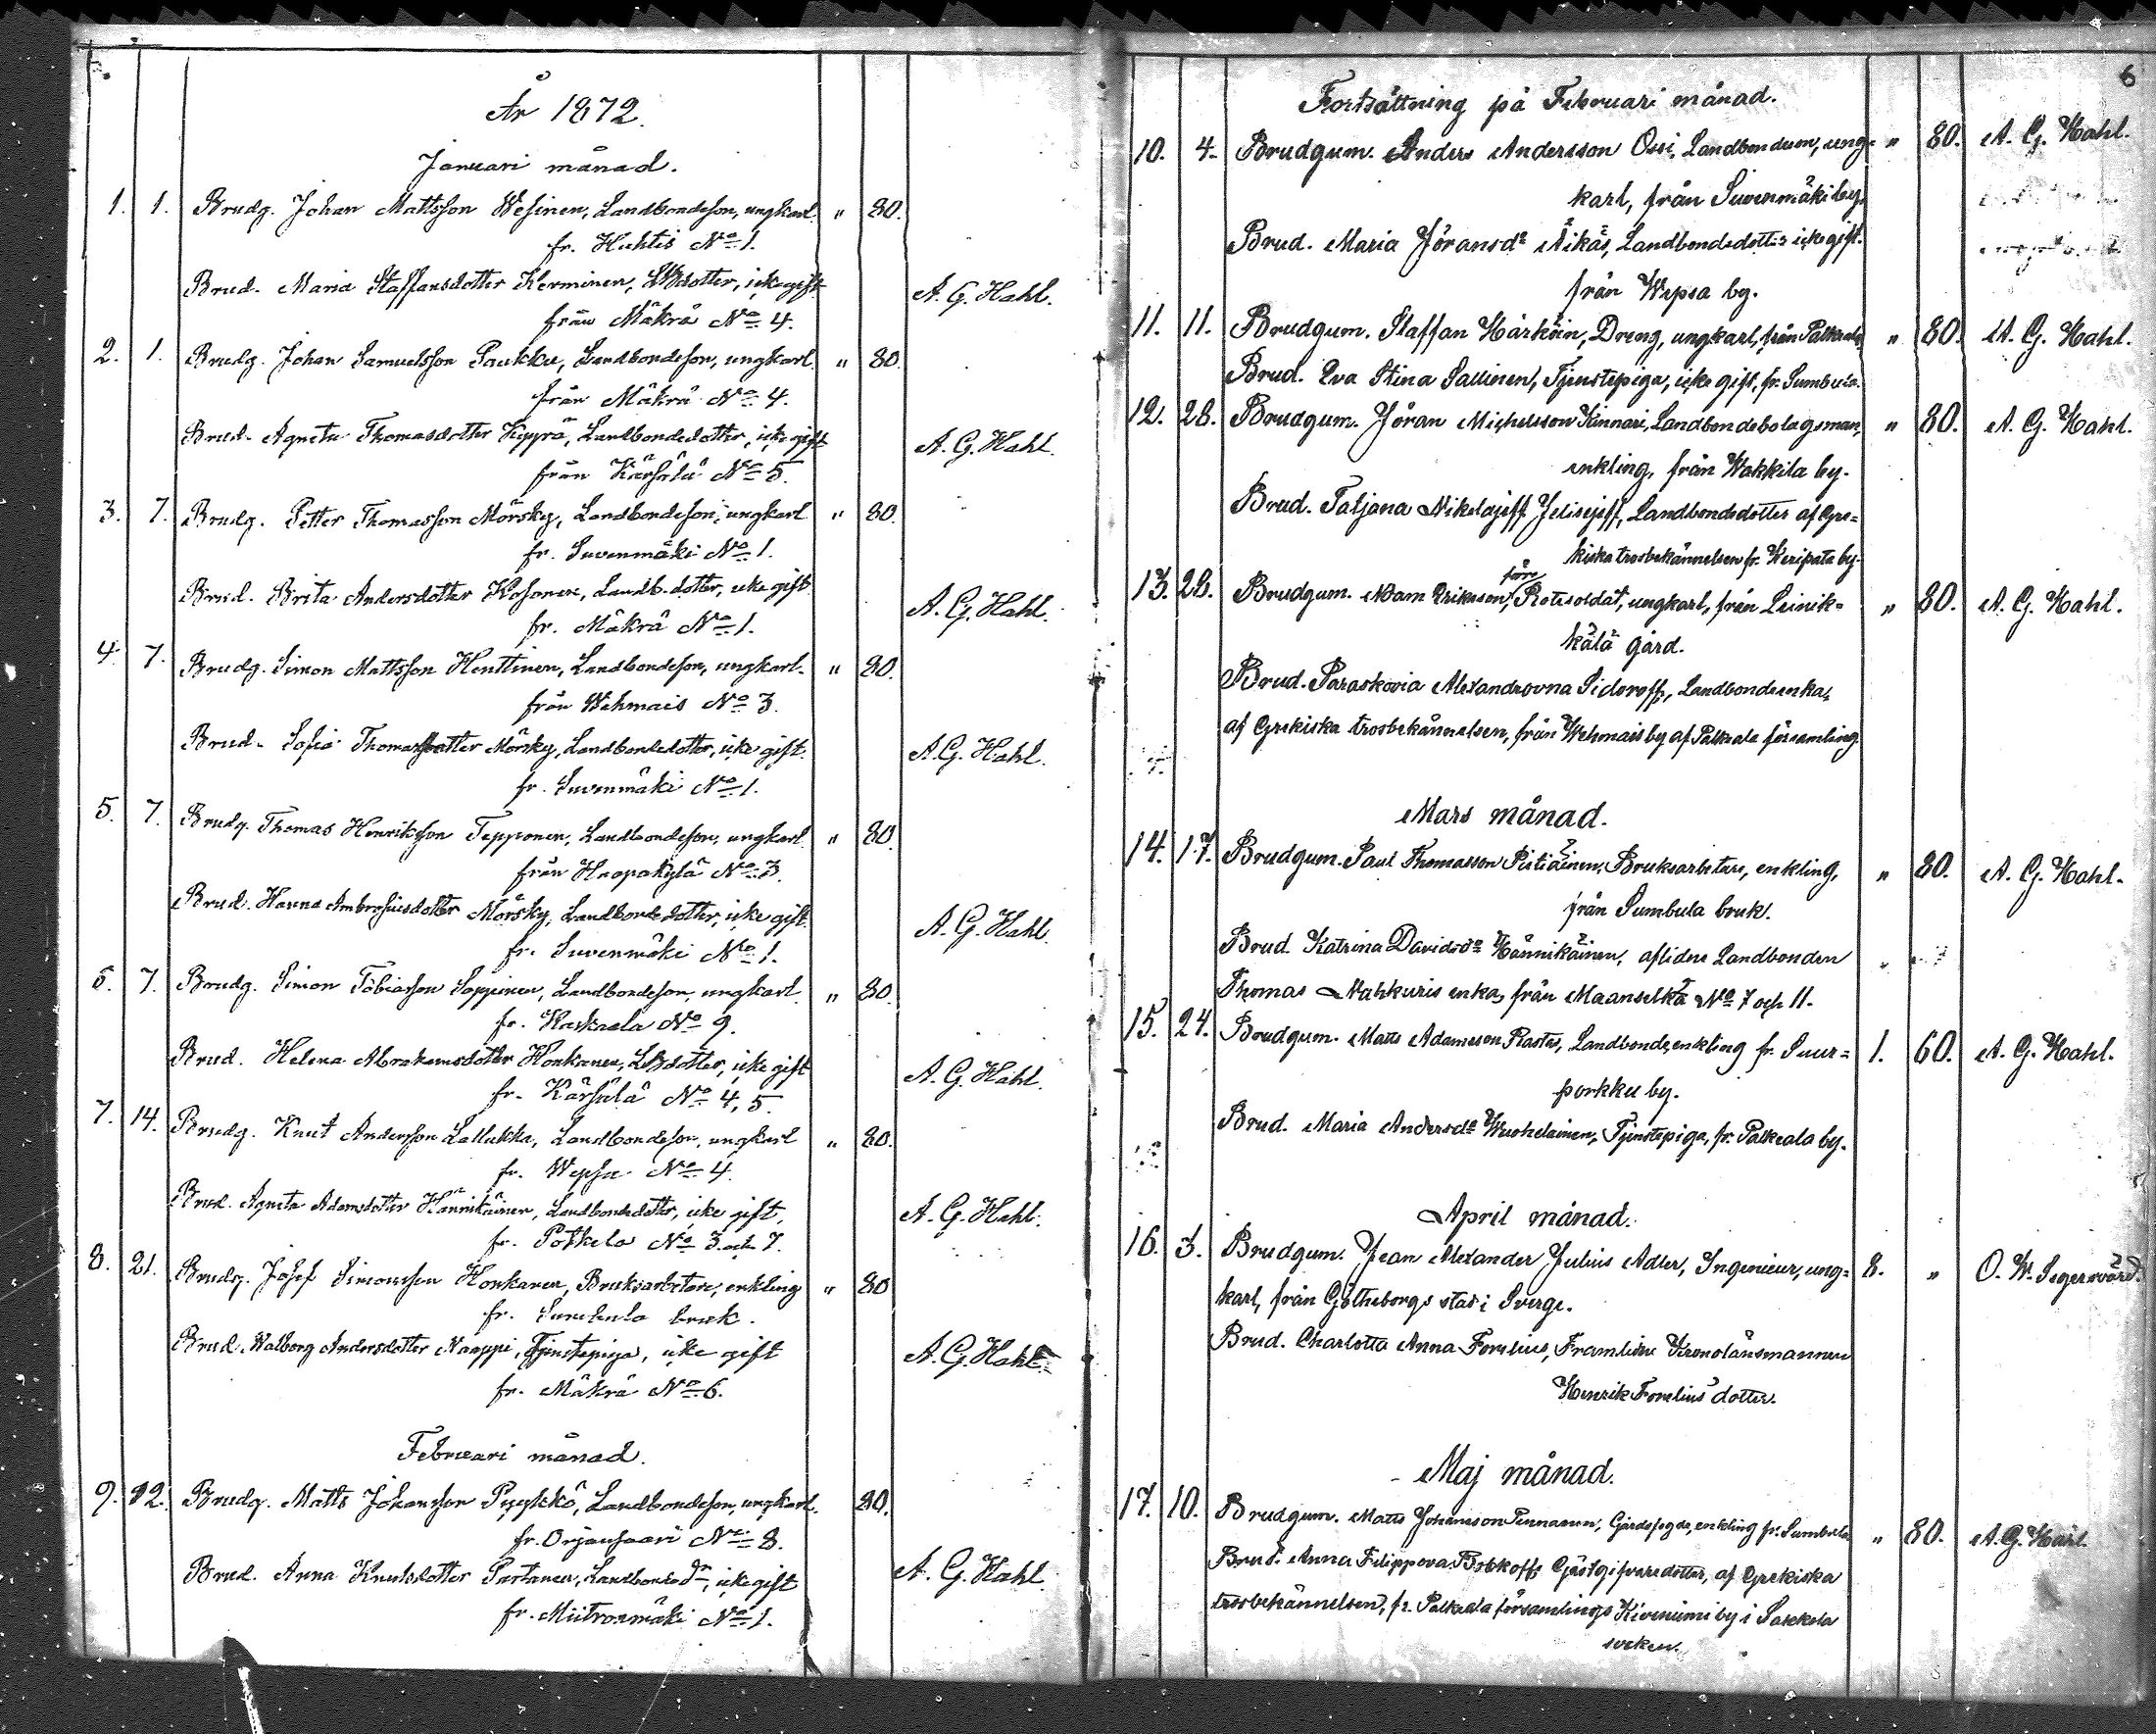 År 1872.
Januari månad.
1. 1. Brudg. Johan Mattsson Wesinen, Landbondeson, ungkarl. " 80.
fr. Huhtis No 1.
Brud. Maria Staffansdotter Kerminen, LBdotter, icke gift A. G. Hahl.
från Mäkrä No 4.
2. 1. Brudg. Johan Samuelsson Paukku, Landbondeson, ungkarl. " 80.
från Mäkrä No 4.
Brud. Agneta Thomasdotter Kyyrä, Landbondedotter, icke gift A. G. Hahl.
från Kärsälä No 5.
3. 7. Brudg. Petter Thomasson Mörsky, Landbondeson, ungkarl " 80.
fr. Suvenmäki No 1.
Brud. Brita Andersdotter Kosonen, Landb. dotter, icke gift A. G. Hahl.
fr. Mäkrä No 1.
4. 7. Brudg. Simon Mattsson Henttinen, Landbondeson, ungkarl. " 80.
från Wehmais No 3.
Brud. Sofia Thomasdotter Mörsky, Landbondedotter, icke gift. A. G. Hahl.
fr. Suvenmäki No 1.
5. 7. Brudg. Thomas Henriksson Tepponen, Landbondeson, ungkarl. " 80.
från Haapakylä No 3.
Brud. Hanna Ambrosiusdotter Mörsky, Landbondedotter, icke gift. A. G. Hahl.
fr. Suvenmäki No 1.
6. 7. Brudg. Simon Tobiasson Soppinen, Landbondeson, ungkarl. " 80.
fr. Kaskaala No 9.
Brud. Helena Abrahamsdotter Honkanen, LBdotter, icke gift A. G. Hahl.
fr. Kärsälä No 4, 5.
7. 14. Brudg. Knut Andersson Lallukka, Landbondeson, ungkarl " 80.
fr. Wepsa No 4.
Brud. Agneta Adamsdotter Hännikäinen, Landbondedotter, icke gift, A. G. Hahl.
fr. Potkela No 3 och 7.
8. 21. Brudg. Josef Simonsson Honkanen, Bruksarbetare, enkling " 80
fr. Sumbula bruk.
Brud. Walborg Andersdotter Naappi, Tjenstepiga, icke gift A. G. Hahl.
fr. Mäkrä No 6.
Februari månad.
9. 12. Brudg. Matts Johansson Pyykkö, Landbondeson, ungkarl. 80.
fr. Orjansaari No 8.
Brud. Anna Knutsdotter Partanen, Landbonde dr, icke gift A. G. Hahl.
fr. Miitronmäki No 1.
6
Fortsättning på Februari månad.
10. 4. Brudgum. Anders Andersson Ossi, Landbondeson, ung- " 80. A. G. Hahl.
karl, från Suvenmäki by.
Brud. Maria Jöransdr Äikäs, Landbondedotter icke gift.
från Wepsa by.
11. 11. Brudgum. Staffan Härkäin, Dreng, ungkarl, från Palkeala " 80. A. G. Hahl.
Brud. Eva Stina Sallinen, Tjenstepiga, icke gift, fr. Sumbula.
12. 28. Brudgum. Jöran Michelsson Kinnari, Landbondebolagsman, " 80. A. G. Hahl.
enkling, från Wakkila by.
Brud. Tatjana Nikolajeff Jelisejeff, Landbondedotter af Gre=
kiska trosbekännelsen fr. Keripata by.
före
13. 28. Brudgum. Adam Eriksson, Rotesoldat, ungkarl, från Leinik= " 80. A. G. Hahl.
kälä gård.
Brud. Paraskovia Alexandrovna Sidoroff, Landbondeenka,
af Grekiska trosbekännelsen, från Wehmais by af Palkeala församling.
Mars månad.
14. 17. Brudgum. Paul Thomasson Pietiäinen, Bruksarbetare, enkling, " 80. A. G. Hahl.
från Sumbula bruk.
Brud. Katrina Davidsdr Hännikäinen, aflidne Landbonden
Thomas Nahkuris enka, från Maanselkä No 7 och 11.
15. 24. Brudgum. Matts Adamsson Rastas, Landbonde, enkling fr. Suur= 1. 60. A. G. Hahl.
porkku by.
Brud. Maria Andersdr Wuohelainen, Tjenstepiga, fr. Palkeala by.
April månad.
16. 3. Brudgum. Jean Alexander Julius Adler, Ingenieur, ung= 8. " O. W. Segersvärd.
karl, från Götheborgs stad i Sverge.
Brud. Charlotta Anna Forelius, Framlidne Kronolänsmannen
Henrik Forelius' dotter.
Maj månad.
17. 10. Brudgum. Matts Johansson Pennanen, Gårdsfogde, enkling fr. Sumbula " 80. A. G. Hahl.
Brud. Anna Filippova Bobkoff, Gästgifvaredotter, af Grekiska
trosbekännelsen, fr. Palkeala församlings Kiviniemi by i Sakkola
socken.